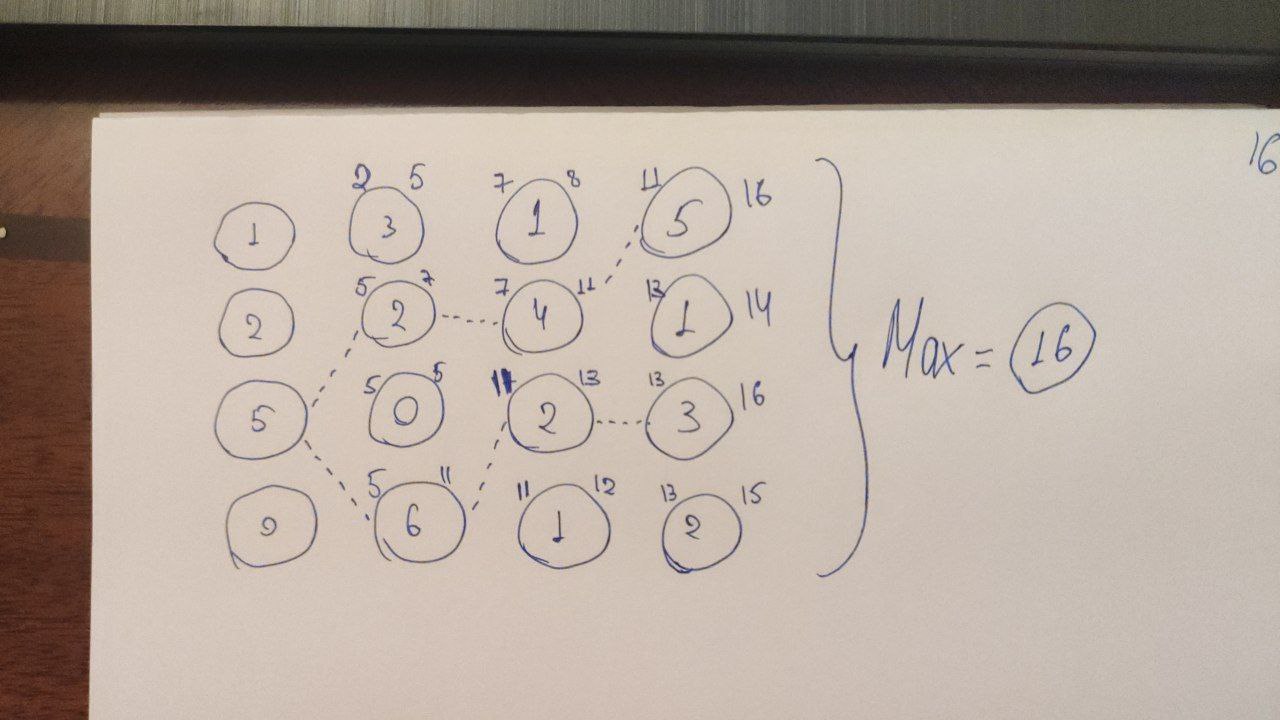 16
2 5 7 8 11
1 3 1 5 16
5 7 7 11 13
2 2 4 1 14
5 5 11 13 13
5 0 2 3 16
5 11 11 12 13 15
0 6 1 2
Max = 16